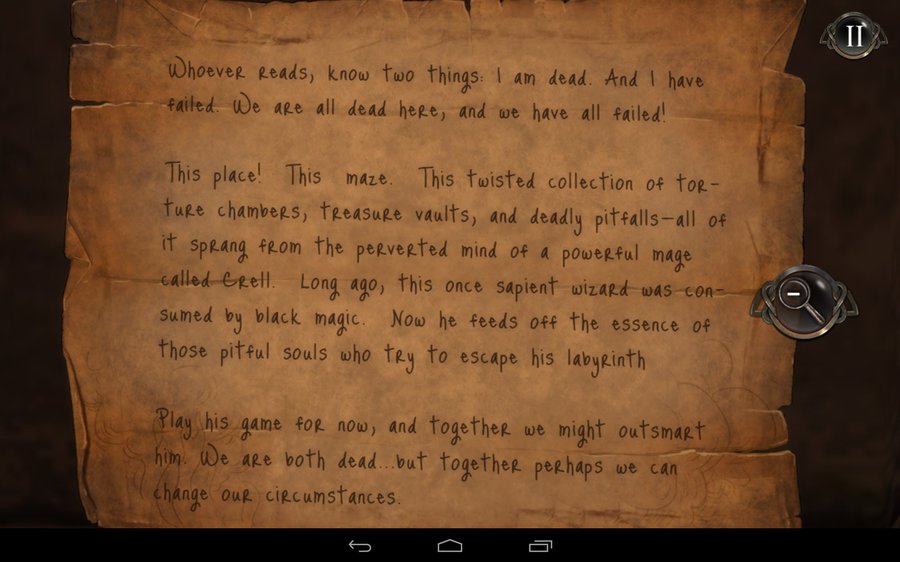 II
Whoever reads, know two things: I am dead. And I have
failed. We are all dead here, and we have all failed!
This place! This maze. This twisted collection of tor-
ture chambers, treasure vaults, and deadly pitfalls—all of
it sprang from the perverted mind of a powerful mage
called Erell. Long ago, this once sapient wizard was con-
sumed by black magic. Now he feeds off the essence of
those pitful souls who try to escape his labyrinth
Play his game for now, and together we might outsmart
him. We are both dead...but together perhaps we can
change our circumstances.